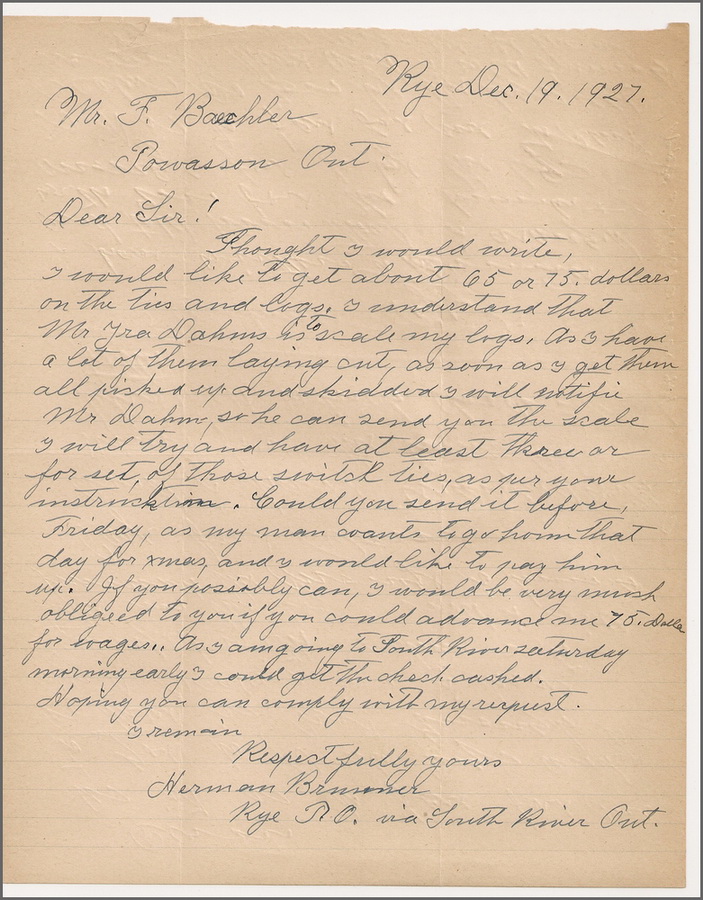 Rye Dec. 19. 1927.
Mr. F. Baechler
Powasson Ont.
Dear Sir!
Thought I would write,
I would like to get about 65 or 75. dollars
on the ties and logs. I understand that
Mr Ira Dahms is to scale my logs. As I have
a lot of them laying cut, as soon as I get them
all picked up and skidded I will notifie
Mr Dahm, so he can send you the scale
I will try and have at least three or
for set, of those switch ties, as per your
instrucktion. Could you send it before,
Friday, as my man wants to go hom that
day for xmas, and I would like to pay him
up. If you possobly can, I would be very much
obligeed to you if you could advance me 75. Dolla
for wages.. As I am going to South River saturday
morning early I could get the check cashed.
Hoping you can comply with my request.
I remain
Respectfully yours
Herman Brunner
Rye P.O. via South River Ont.